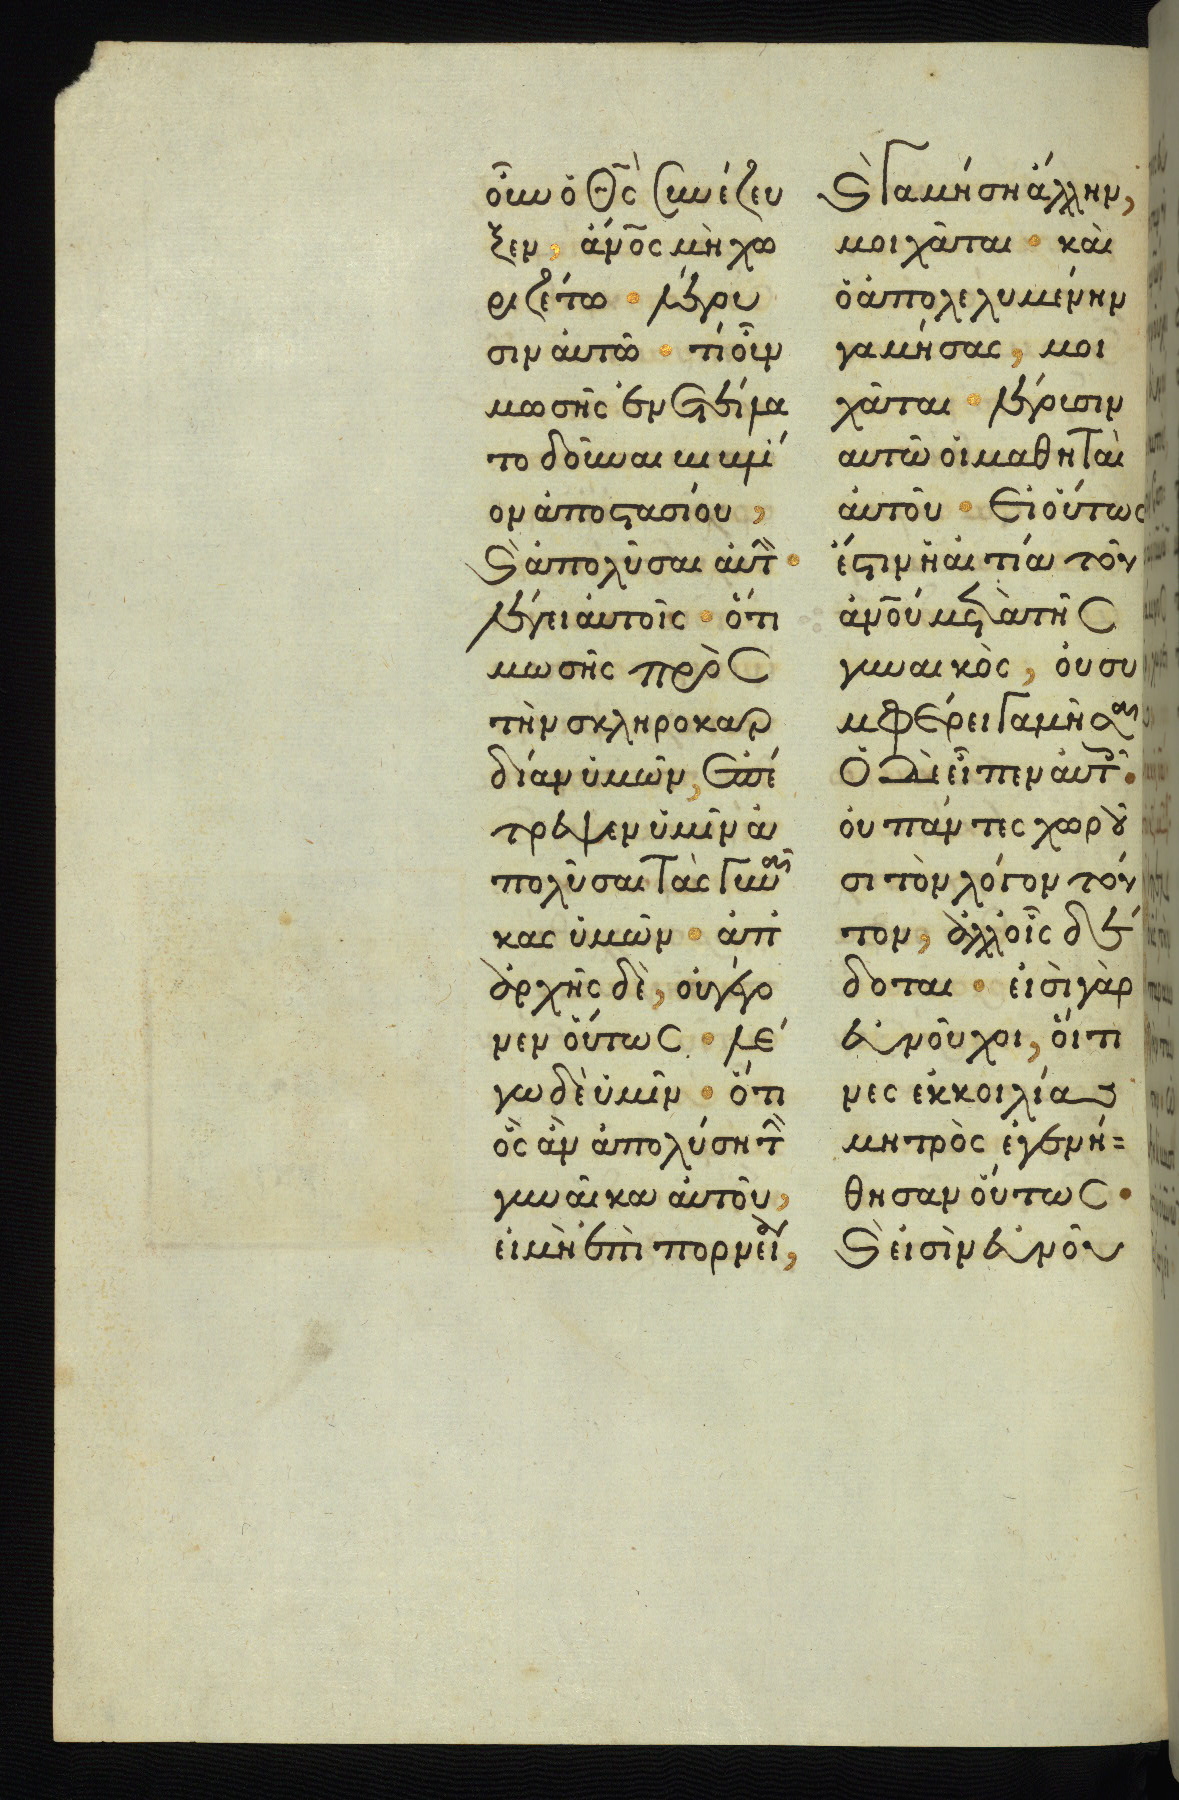 οὖν ὁ θς̅ συνέζευ
ξεν, ἄνο̅ς μὴ χω
ριζέτω · λέγου
σιν αυτῶ · τί οὖν
μωσῆς ἐνετείλα
το δοῦναι βιβλί
ον ἀποστασίου,
καὶ ἀπολῦσαι αὐτ̅ ·
λέγει αὐτοῖς · ὅτι
μωσῆς πρὸς
τὴν σκληροκαρ
δίαν ὑμῶν, ἐπέ
τρεψεν ὑμῖν ἀ
πολῦσαι τὰς γυναῖ
κας ὑμῶν · ἀπ'
ἀρχῆς δὲ, οὐ γέγο
νεν οὕτως · λέ
γω δὲ ὑμῖν · ὅτι
ὃς ἂν ἀπολύση τ̅
γυναῖκα αὐτοῦ,
εἰ μὴ ἐπὶ πορνεία,
καὶ γαμήση ἄλλην,
μοιχᾶται · καὶ
ὁ ἀπολελυμένην
γαμήσας, μοι
χᾶται · λέγουσιν
αυτῶ οἱ μαθηταὶ
ἀυτοῦ · εἰ οὕτως
ἐστιν ἡ αἰτία τοῦ
ἀνο̅ύ μετὰ τῆς
γυναικὸς, οὐ συ
μφέρει γαμῆσαι
ὁ δὲ εἶπεν αὐτ̅ ·
οὐ πάντες χωροῦ
σι τὸν λόγον τοῦ
τον, ἀλλ' οἷς δέ
δοται · εἰσὶ γὰρ
εὐνοῦχοι, οἵτι
νες ἐκ κοιλίας
μητρὸς ἐγεννή=
θησαν οὕτως ·
καὶ εἰσὶν εὐνοῦ